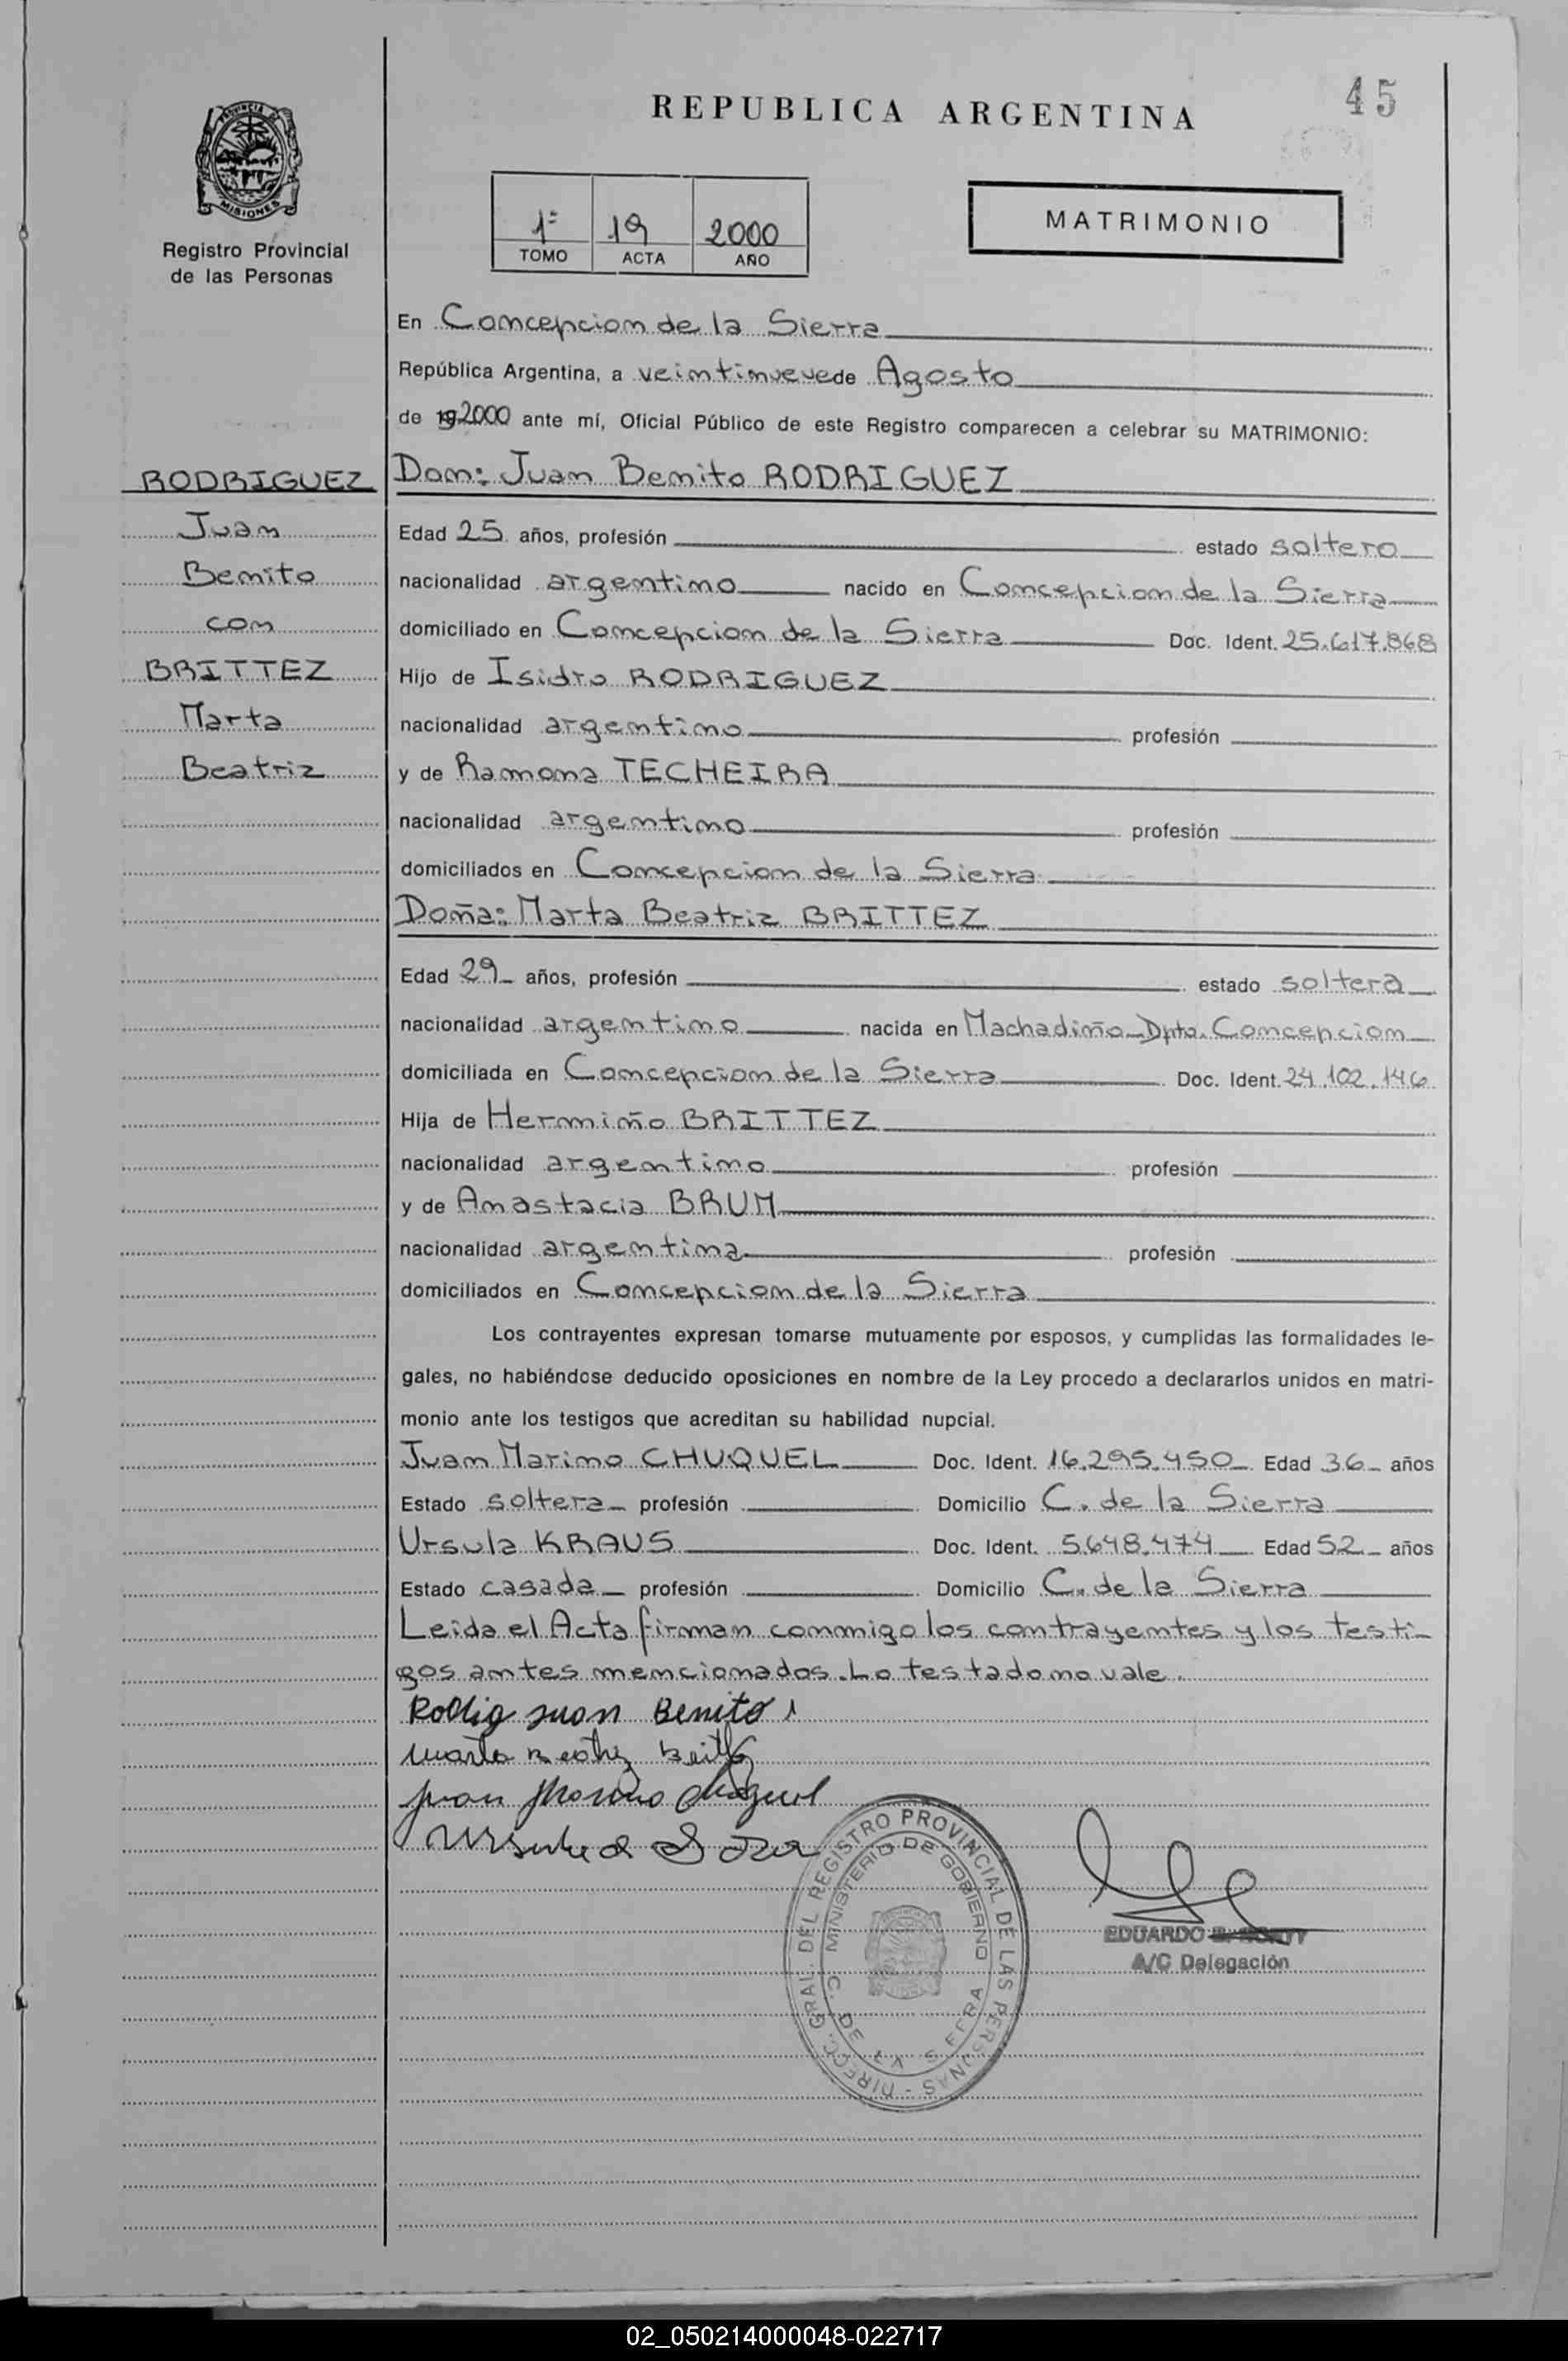 45
REPUBLICA ARGENTINA
PROVINCIA DE
MISIONES
Registro Provincial
de las Personas
1º 19 2000
TOMO ACTA AÑO
MATRIMONIO
En Concepcion de la Sierra
República Argentina, a veintinueve de Agosto
de 19 2000 ante mí, Oficial Público de este Registro comparecen a celebrar su MATRIMONIO:
RODRIGUEZ
Juan
Benito
con
BRITTEZ
Marta
Beatriz
Don: Juan Benito RODRIGUEZ
Edad 25 años, profesión estado soltero
nacionalidad argentino nacido en Concepcion de la Sierra
domiciliado en Concepcion de la Sierra Doc. Ident. 25.617.868
Hijo de Isidro RODRIGUEZ
nacionalidad argentino profesión
y de Ramona TECHEIRA
nacionalidad argentino profesión
domiciliados en Concepcion de la Sierra
Doña: Marta Beatriz BRITTEZ
Edad 29 años, profesión estado soltera
nacionalidad argentino nacida en Machadiño-Dpto. Concepcion
domiciliada en Concepcion de la Sierra Doc. Ident. 24.102.146
Hija de Hermiño BRITTEZ
nacionalidad argentino profesión
y de Anastacia BRUM
nacionalidad argentina profesión
domiciliados en Concepcion de la Sierra
Los contrayentes expresan tomarse mutuamente por esposos, y cumplidas las formalidades le-
gales, no habiéndose deducido oposiciones en nombre de la Ley procedo a declararlos unidos en matri-
monio ante los testigos que acreditan su habilidad nupcial.
Juan Marino CHUQUEL Doc. Ident. 16.295.450 Edad 36 años
Estado soltera profesión Domicilio C. de la Sierra
Ursula KRAUS Doc. Ident. 5.648.474 Edad 52 años
Estado casada profesión Domicilio C. de la Sierra
Leida el Acta firman conmigo los contrayentes y los testi-
gos antes mencionados. Lo testado no vale.
Juan Benito
Marta Beatriz
Juan Marino Chuquel
Ursula
DIRECC. GRAL. DEL REGISTRO PROVINCIAL DE LAS PERSONAS -
MINISTERIO DE GOBIERNO
C. DE LA SIERRA
EDUARDO
A/C Delegación
02_050214000048-022717